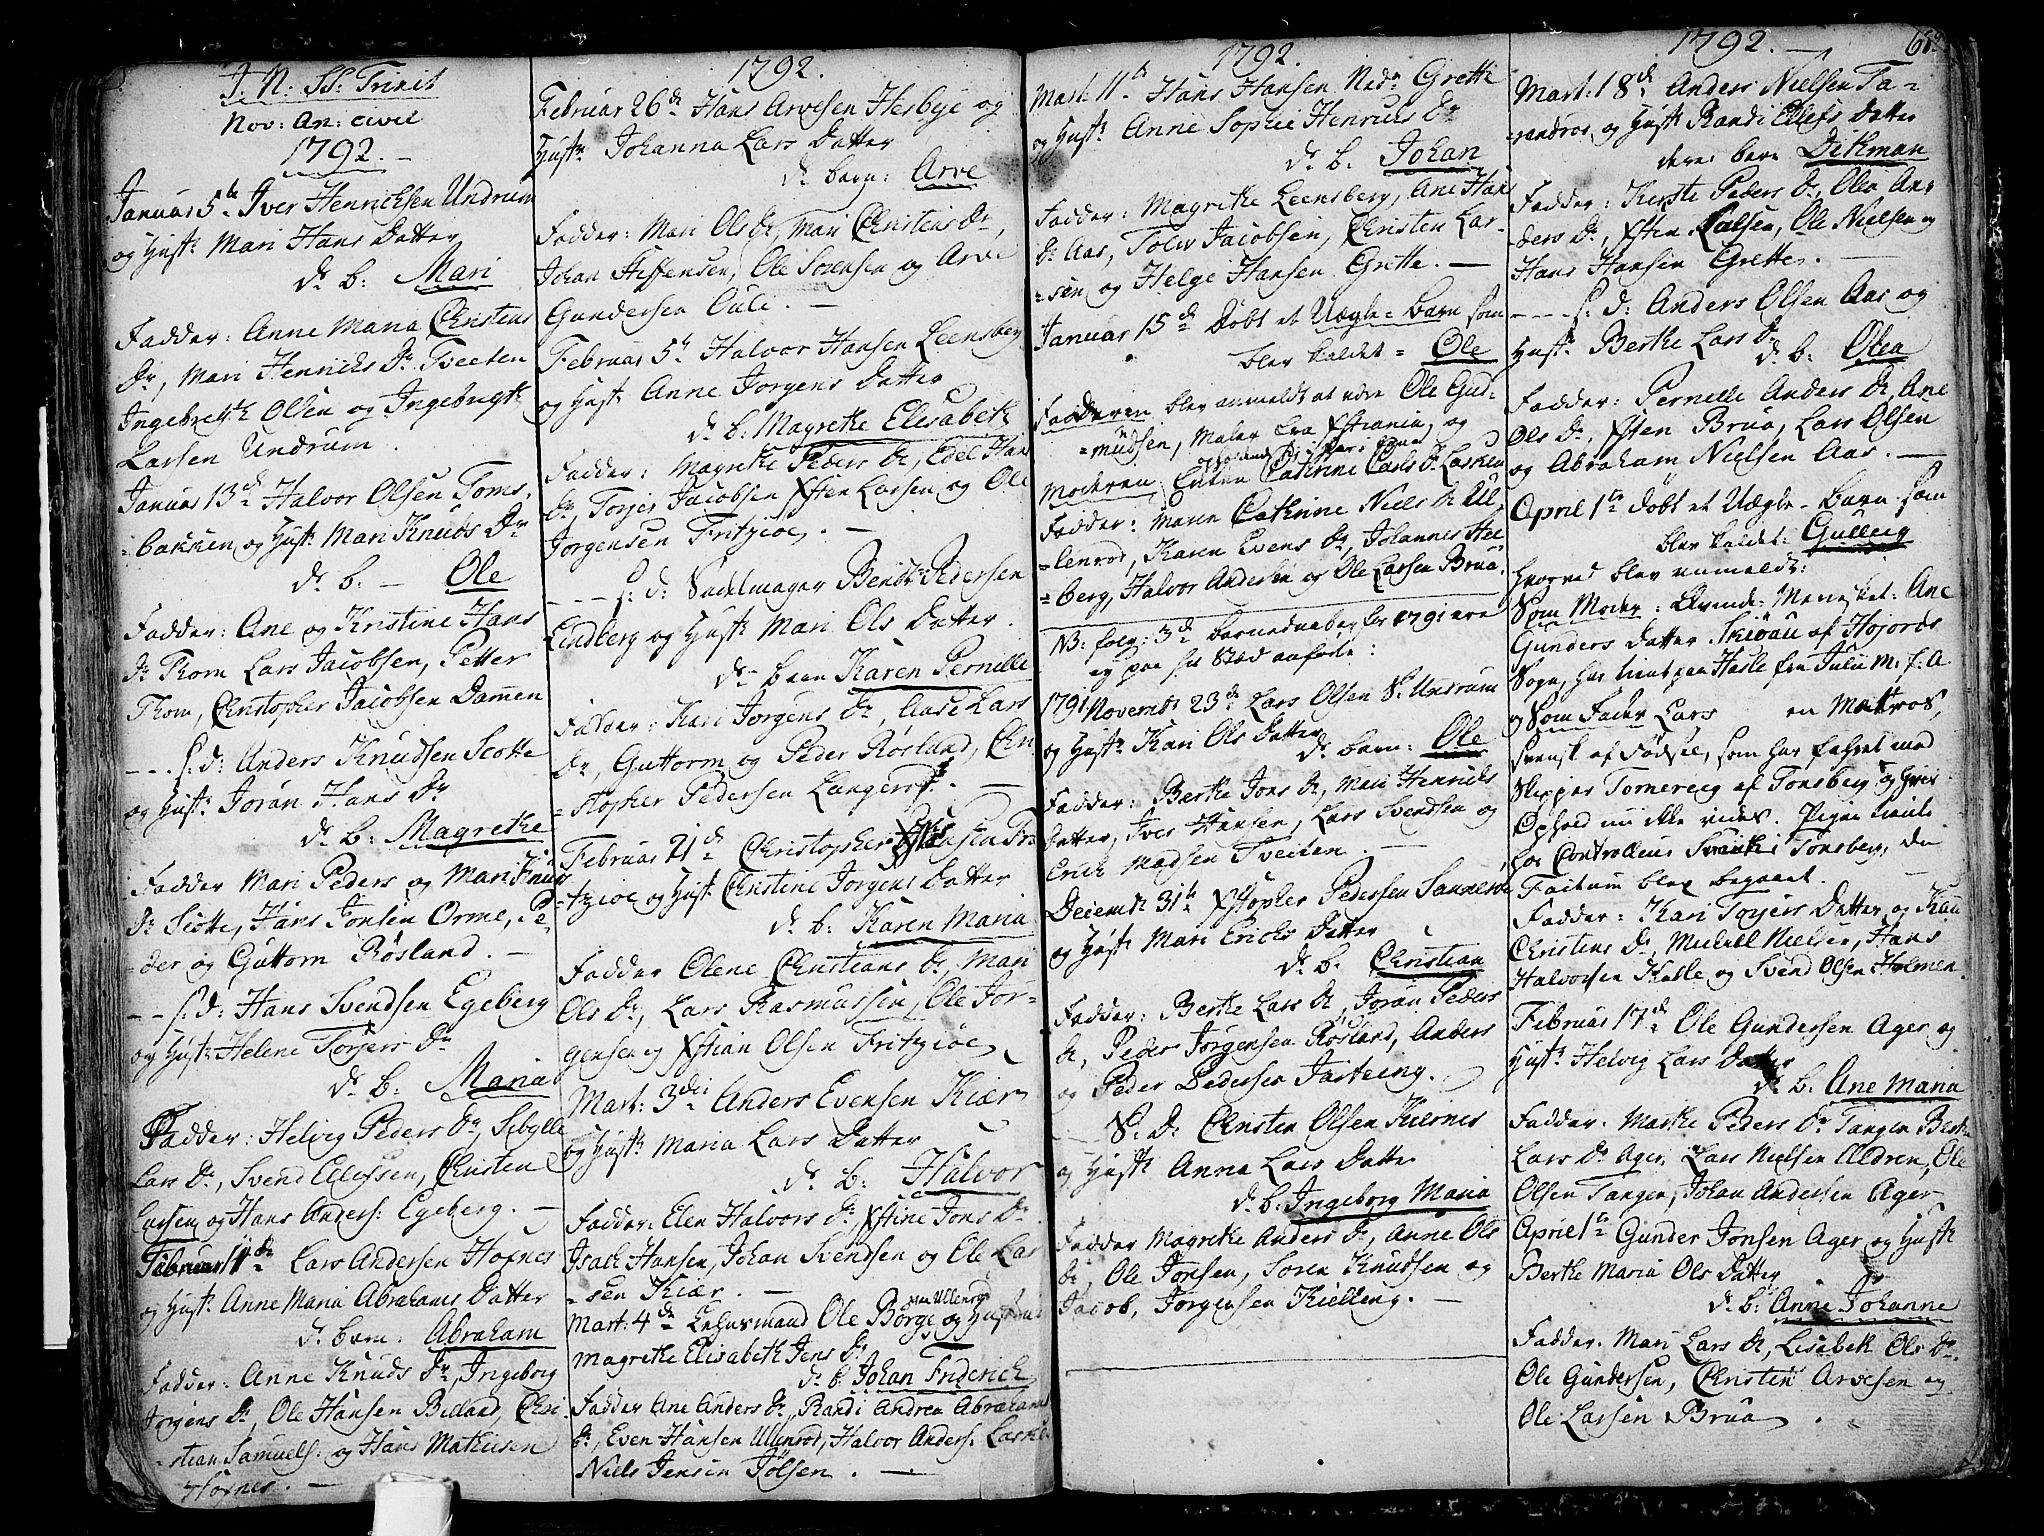 J. N: SS: Trinit
Nov: An: civil
1792. -
Januar 5te Iver Henrichsen Undrum
og Hustr: Mari Hans Datter
dr b: Mari
Fadder: Anne Maria Christens
Dr, Mari Henrichs Dr Tveeten
Ingebrett Olsen og Ingebrigt
Larsen Undrum.
Januar 13de Halvor Olsen Toms-
=bakken og Hustr: Mari Knuds Dr
dr b: - Ole
Fadder: Ane og Kristine Hans
Dr Thom Lars Jacobsen, Petter
Thom, Christopher Jacobsen Dammen
- - - s: d: Anders Knudsen Scotte
og Hustr: Joran Hans Dr
dr b: Magrethe
Fadder Mari Peders og Mari Knuds
Dr Scotte, Hans Jonsen Orme, Pe-
-der og Guttorm Røsland. -
- - s: d: Hans Svendsen Egeberg
og Hustr: Helene Torgers Dr
dr b: Maria
Fadder: Helvig Peders Dr, Sebylle
Lars Dr, Svend Ellefsen, Christen
Larsen og Hans Anders: Egeberg. -
Februar 11de Lars Andersen Hofnes
og Hustr: Anne Maria Abrahams Datter
dr barn: Abraham
Fadder: Anne Knuds Dr, Ingeborg
Jorgens Dr, Ole Hansen Berland, Chri-
-stian Samuels: og Hans Mathisen
Hofnes. -
1792.
Februar 26de Hans Arvesen Hesbye og
Hustr Johanna Lars Datter
dr barn: Arve
Fadder: Mari Ols Dr, Mari Christens Dr,
Johan Steffensen, Ole Sorensen og Arve
Gundersen Aule. -
Februar 5te Halvor Hansen Leensberg
og Hustr Anne Jorgens Datter
dr b: Magrethe Elisabeth
Fadder: Magrethe Peders Dr, Edel Hans
Dr, Torger Jacobsen Xsten Larsen og Ole
Jorgensen Fritzioe. -
- - - s: d: Sadelmager Bendt Pedersen
Lindberg og Hustr Mari Ols Datter.
dr barn Karen Pernille
Fadder: Kari Jorgens Dr, Aase Lars
Dr, Guttorm og Peder Røsland, Chri-
=stopher Pedersen Langerød. -
Februar 21de Christopher Hansen Fri-
-tzioe og Hustr Christine Jorgens Datter
dr b: Karen Maria
Fadder Olene Christians Dr, Mari
Ols Dr, Lars Rasmussen, Ole Jør-
gensen og Xstian Olsen Fritzioe
Mart: 3die Anders Evensen Kiær
og Hustr Maria Lars Datter
dr b: Halvor
Fadder: Elen Halvors Dr, Xstine Jons Dr
Isach Hansen, Johan Svendsen og Ole Lar-
=sen Kiær. -
Mart: 4de Lehnsmand Ole Borge paa Ullenrød og Hustrue
Magrethe Elisabeth Jens Dr
dr b Johan Friderich
Fadder Ane Anders Dr, Randi Andrea Abrahams
Dr, Even Hansen Ullenrod, Halvor Anders: Lasken
Niels Jensen Jølsen. -
1792.
Mart: 11te Hans Hansen Nedr Grette
og Hustr Anne Sophie Henrichs Dr
dr b. Johan
Fadder: Magrethe Leensberg, Ane Hans
Dr Aas, Tolv Jacobsen, Christen Lar-
=sen og Helge Hansen Grette. -
Januar 15de døbt et Uægte-barn som
blev kaldet = Ole
Faderen blev anmeldt at være Ole Gud-
=mundsen, Maler fra Xstiania, og
Moderen, Enken Cathrine Carls Dr Lasken
Fadder: Maren Cathrine Niels Dr Ul-
=lenrod, Karen Evens Dr, Johannes Hee-
=berg, Halvor Andersen og Ole Larsen Brua.
NB: følg: 3de barnedaaber for 1791 ere
ej paa sit Stæd anførte:
1791 Novembr 23de Lars Olsen S: Undrum
og Hustr Kari Ols Datter
dr barn: Ole
Fadder: Berthe Jons Dr, Mari Henrichs
Datter, Iver Hansen, Lars Svendsen og
Erich Madsen Tveiten. -
Decembr 31te Xstopher Pedersen Sannerød
og Hustr Mari Erichs Datter
dr b. Christian
Fadder: Berthe Lars Dr, Joran Peders
Dr, Peder Jorgensen Røsland, Anders
og Peder Pedersen Jarteing.
S: D: Christen Olsen Kiernes
og Hustr Anna Lars Datter
dr b: Ingeborg Maria
Fadder Magrethe Anders Dr, Anne Ols
Dr, Ole Jonsen, Soren Knudsen og
Jacob Jorgensen Kielleng. -
1792. -
Mart: 18de Anders Nielsen Ta-
=randrød og Hustr Randi Ellefs Datter
deres barn Dithman
Fadder: Kirste Peders Dr, Olea An-
ders Dr, Xsten Carlsen, Ole Nielsen og
Hans Hansen Grette. -
- - - s: d: Anders Olsen Aas og
Hustr Berthe Lars Dr
dr b: Olea
Fadder: Pernille Anders Dr, Ane
Ols Dr, Xsten Brua, Lars Olsen
og Abraham Nielsen Aas. -
April 1te døbt et Uægte-Barn som
blev kaldet: Gulleig
hvorved blev anmeldt:
Som Moder: Qvinde-Mennesket: Ane
Gunders Datter Skiøau af Hofords
Sogn, har tient paa Hasle fra Julii M: f: A.
og Som Fader Lars en Matros,
Svensk af Fødsel, som har fahret med
Skipper Tomereig af Tonsberg og hvis
Ophold nu ikke vides. Pigen tiente
hos Controlleur Svanki Tonsberg, da
Factum blev begaaet. -
Fadder: Kari Torgers Datter og Kari
Christens Dr, Michell Nielsen, Hans
Halvorsen Kalle og Svend Olsen Holmen.
Februar 17de Ole Gundersen Ager og
Hustr Helvig Lars Datter
dr b. Ane Maria
Fadder. Marthe Peders Dr Tangen Berthe
Lars Dr Ager, Lars Nielsen Aldren, Ole
Olsen Tangen, Johan Andersen Ager
April 1te Gunder Jonsen Ager og Hustr
Berthe Maria Ols Datter
dr b: Anne Johanne
Fadder. Mari Lars Dr, Lisabeth Ols Dr.
Ole Gundersen, Christen Arvesen og
Ole Larsen Brua.